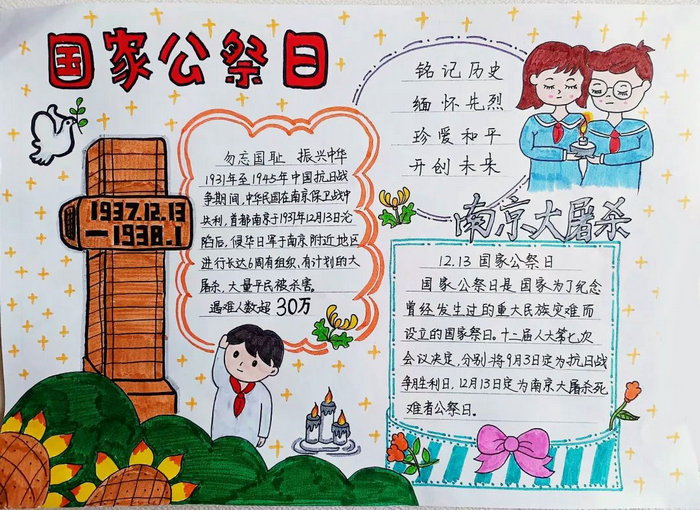 国家公祭日
1937.12.13
—1938.1
勿忘国耻 振兴中华
1931年至1945年中国抗日战
争期间,中华民国在南京保卫战中
失利,首都南京于1937年12月13日沦
陷后,侵华日军于南京附近地区
进行长达6周有组织、有计划的大
屠杀、大量平民被杀害。
遇难人数超30万
铭记历史
缅怀先烈
珍爱和平
开创未来
南京大屠杀
12.13 国家公祭日
国家公祭日是国家为了纪念
曾经发生过的重大民族灾难而
设立的国家祭日。十二届人大第七次
会议决定,分别将9月3日定为抗日战
争胜利日,12月13日定为南京大屠杀死
难者公祭日。